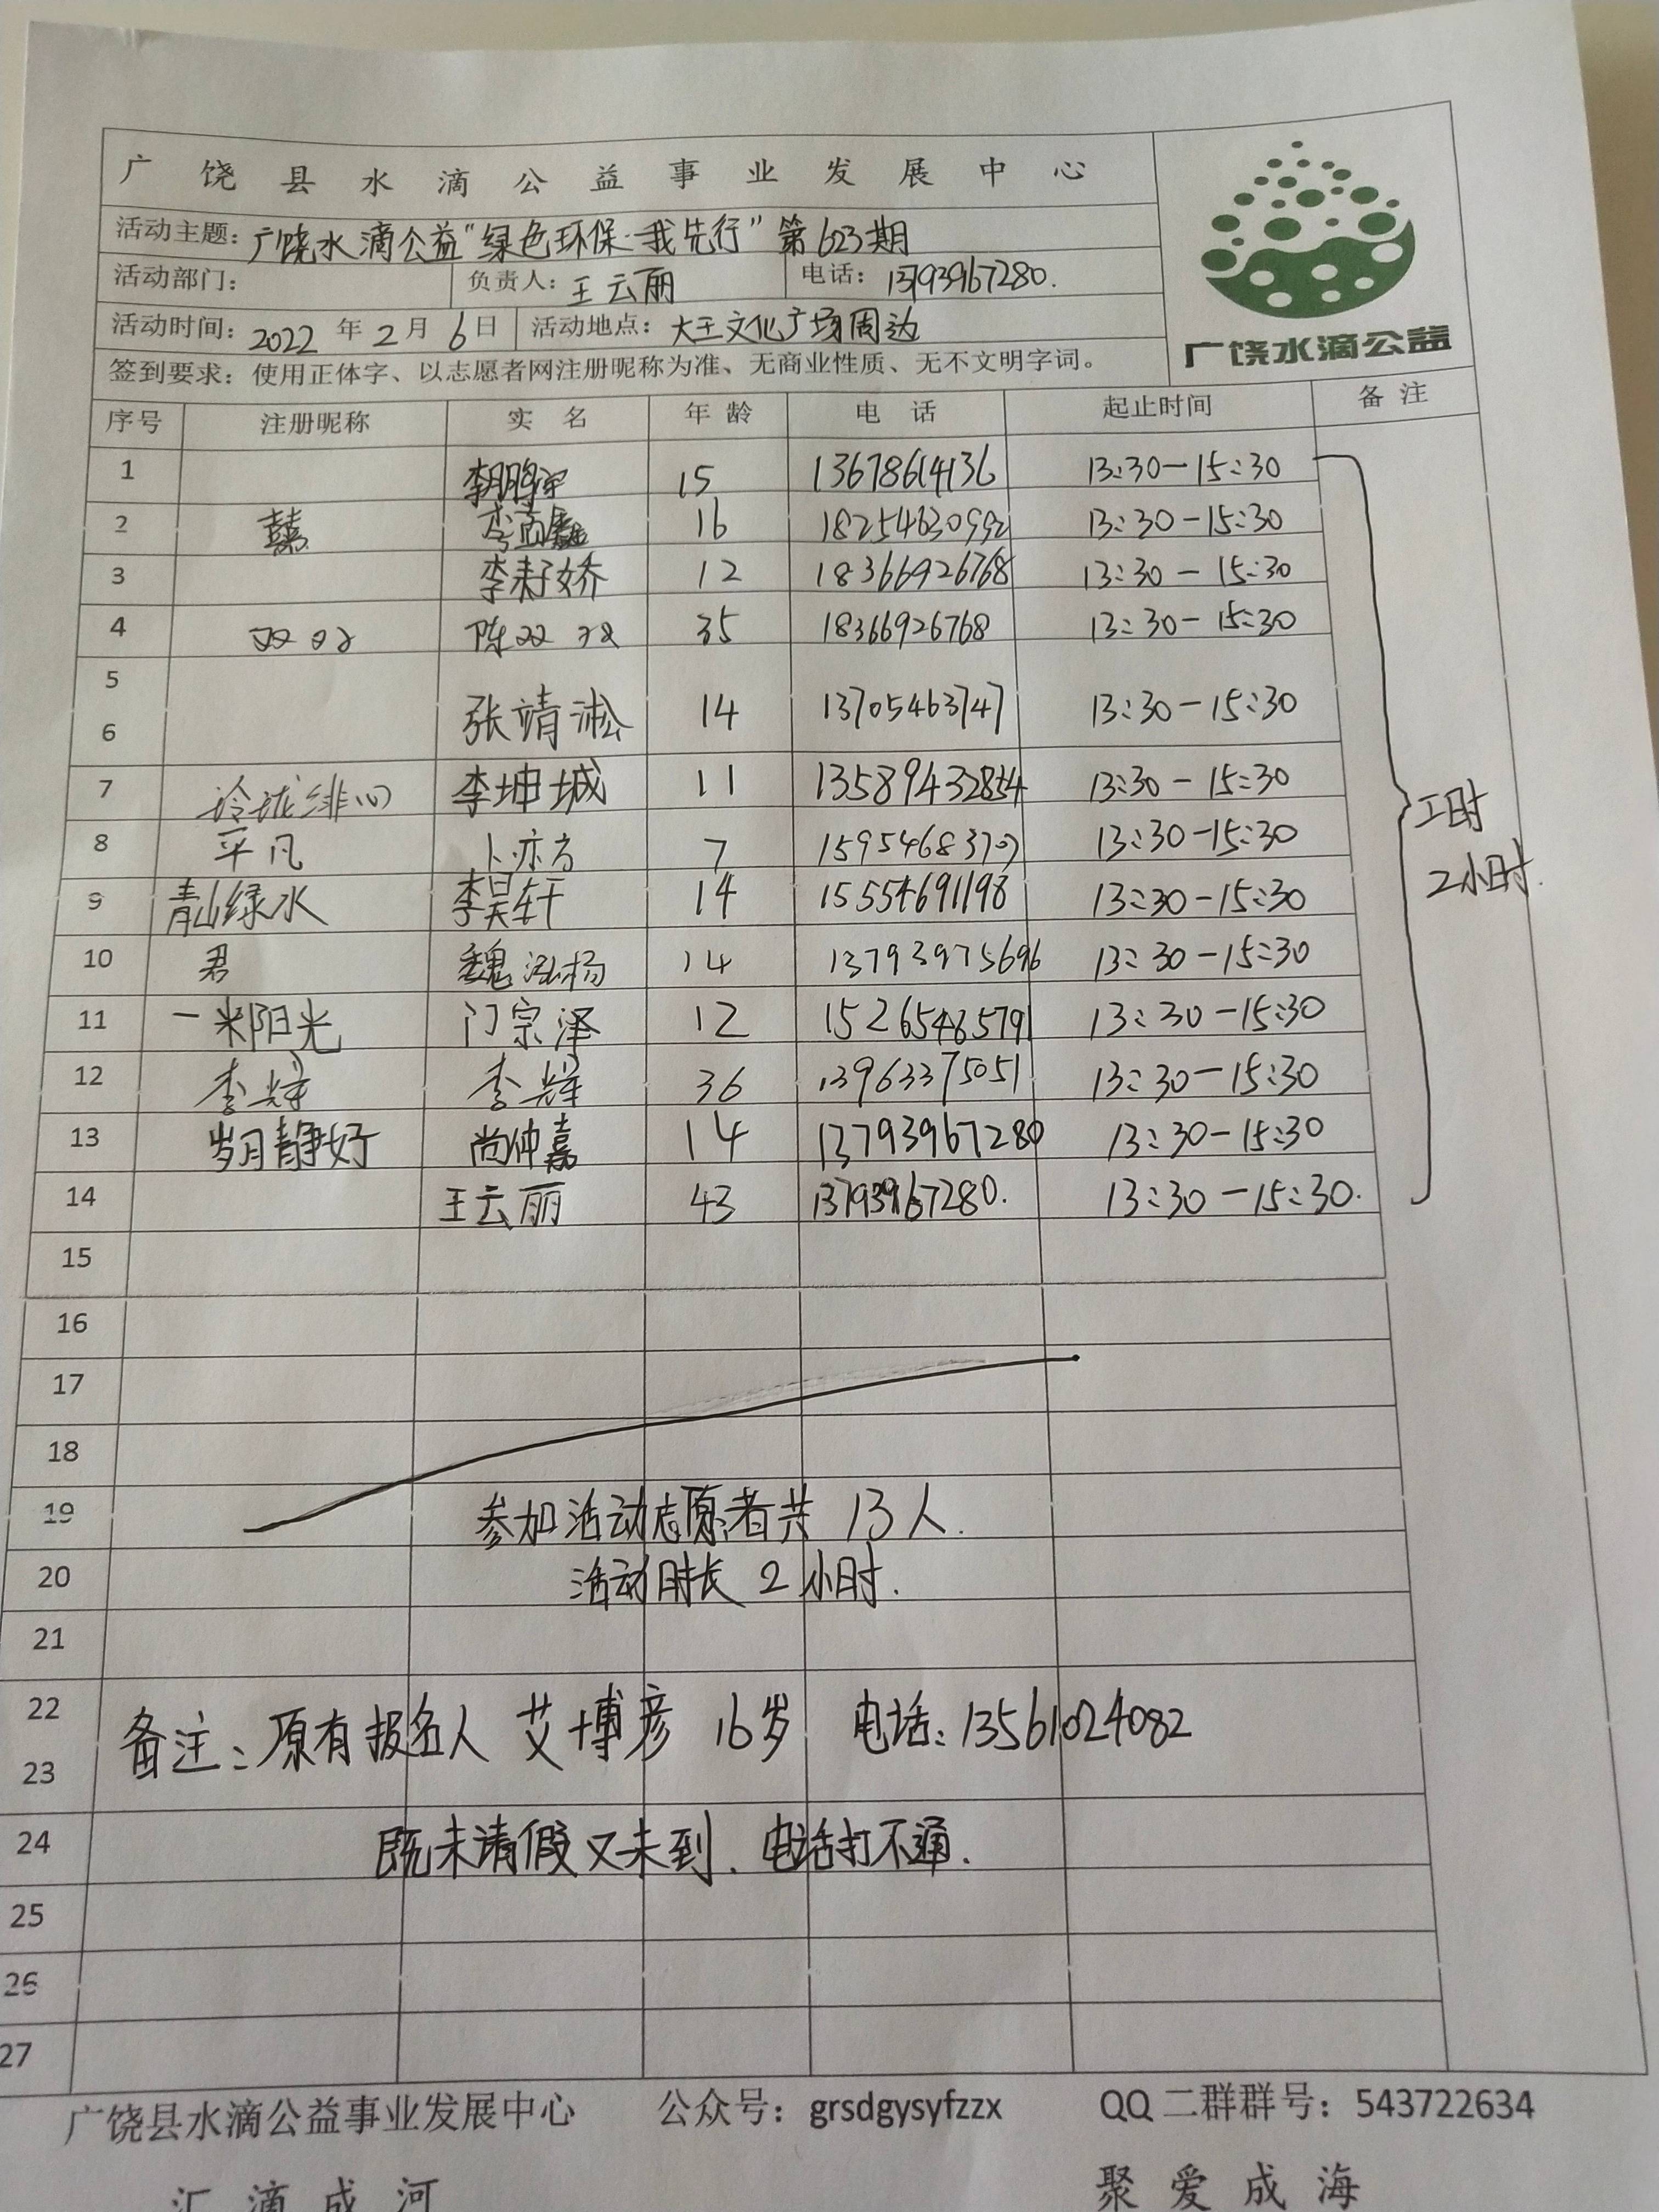 广饶县水滴公益事业发展中心
活动主题：广饶水滴公益“绿色环保·我先行”第623期
活动部门： 负责人：王云丽 电话：13793967280.
活动时间：2022年2月6日 活动地点：大王文化广场周边
广饶水滴公益
签到要求：使用正体字、以志愿者网注册昵称为准、无商业性质、无不文明字词。
序号 注册昵称 实名 年龄 电话 起止时间 备注
1 15 13678614136 13:30-15:30
2 李 16 18254630992 13:30-15:30
3 李籽娇 12 18366926768 13:30-15:30
4 双双 陈双双 35 18366926768 13:30-15:30
5
6 张靖淞 14 13705463747 13:30-15:30
7 玲珑绯心 李坤城 11 13:30-15:30
工时
2小时.
8 平凡 卜亦方 7 13:30-15:30
9 青山绿水 李昊轩 14 15554691198 13:30-15:30
10 君 魏泓杨 14 13793975696 13:30-15:30
11 一米阳光 门宗泽 12 15265465791 13:30-15:30
12 李辉 李辉 36 13963375051 13:30-15:30
13 岁月静好 尚仲嘉 14 13793967280 13:30-15:30
14 王云丽 43 13793967280. 13:30-15:30.
15
16
17
18
19 参加活动志愿者共13人.
20 活动时长2小时.
21
22
备注：原有报名人 艾博彦 16岁 电话：13561024082
23
24 既未请假又未到.电话打不通.
25
26
27
广饶县水滴公益事业发展中心 公众号：grsdgysyfzzx QQ二群群号：543722634
汇滴成河 聚爱成海